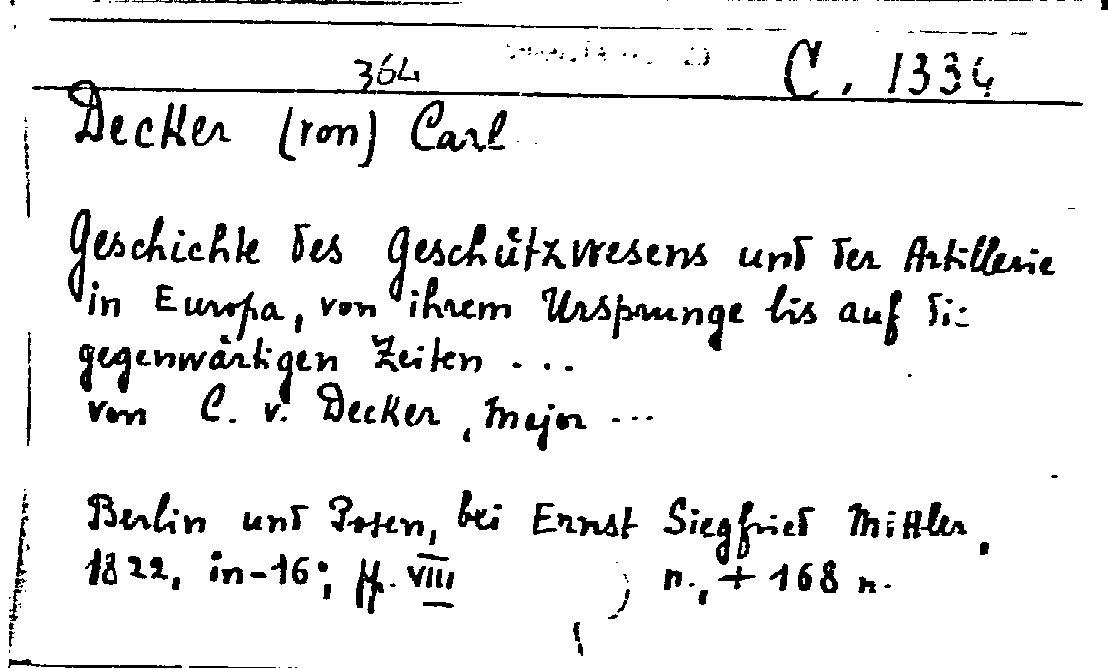 364 C. 1334
Decker (von) Carl
Geschichte des Geschützwesens und der Artillerie
in Europa, von ihrem Ursprunge bis auf die
gegenwärtigen Zeiten ...
von C. v. Decker, Major ...
Berlin und Posen, bei Ernst Siegfried Mittler,
1822, in-16°, ff. VIII n., + 168 n.